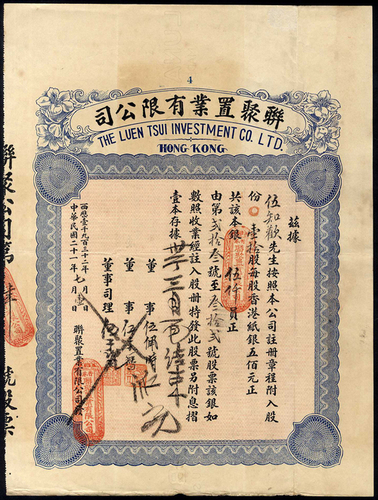 4
司公限有業置聚聯
THE LUEN TSUI INVESTMENT CO. LTD.
HONG KONG
茲據
伍知歡先生按照本公司註冊章程附入股
份壹拾股每股香港紙銀五佰元正
共該本銀伍仟員正
由第貳拾叁號至叁拾貳號股票該銀如
數照收業經註入股冊特發此股票另附息摺
壹本存據
董事
董事伍
董事司理
西歷壹千九百三十二年七月日
中華民國二十一年七月日
聯聚置業有限公司
聯聚公司第
號股票